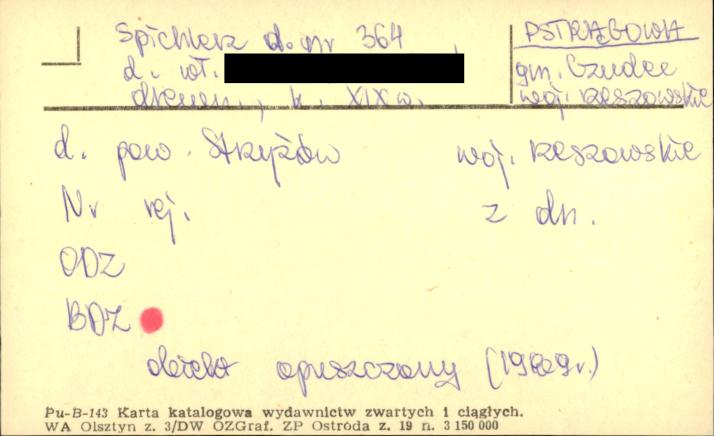 Spichlerz d. nr 364
PSTRĄGOWA
d. wł.
gm. Czudec
drewn., k. XIX w.
woj. rzeszowskie
d. pow. Strzyżów woj. rzeszowskie
Nr rej. z dn.
ODZ
BDZ
obiekt opuszczony (1989r.)
Pu-B-143 Karta katalogowa wydawnictw zwartych i ciągłych.
WA Olsztyn z. 3/DW OZGraf. ZP Ostróda z. 19 n. 3 150 000